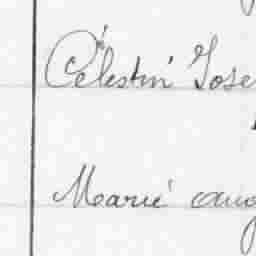 Célestin Jose
Marie aug